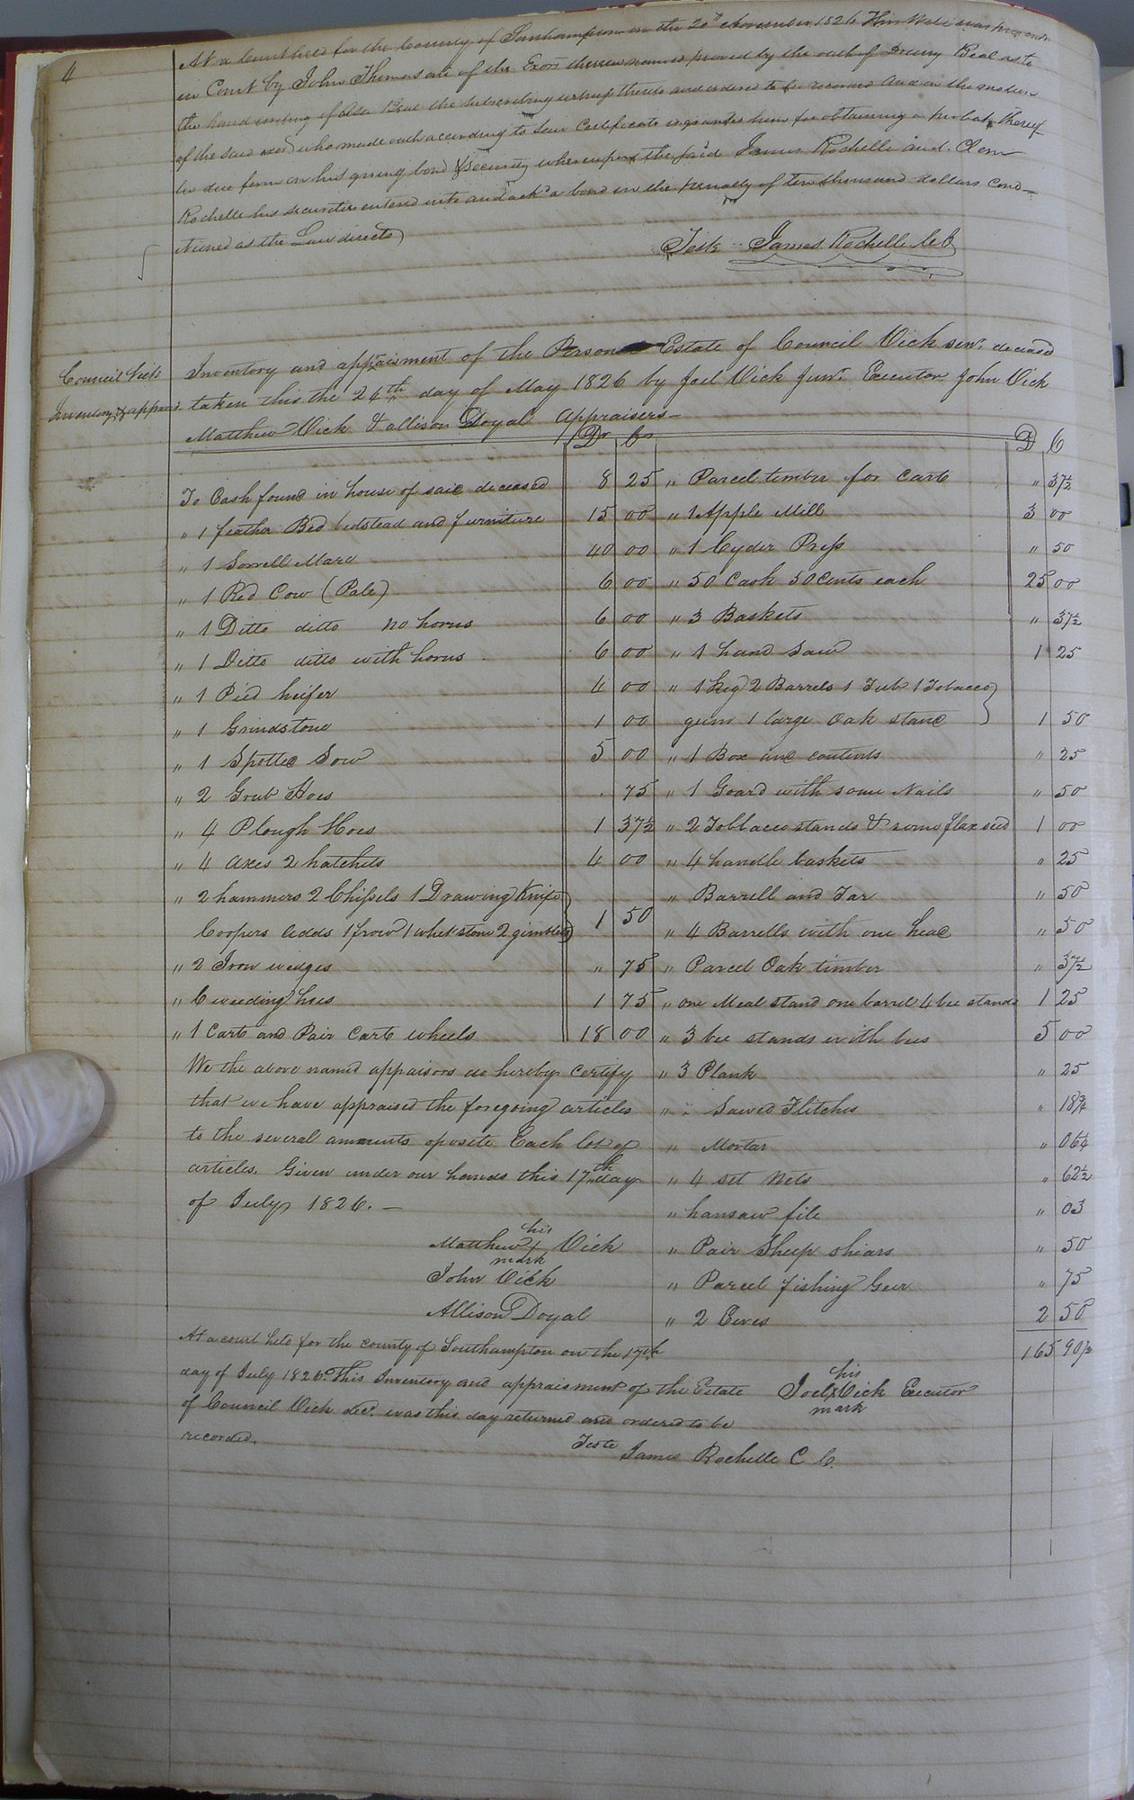 4
At a Court held for the County of Southampton on the 20th November 1826 This Will was
in Court by John Thomas one of the Exors therein named proved by the oath of Drewry Beal as to
the hand writing of Beal the subscribing witness thereto and ordered to be recorded And on the motion
of the said exor who made oath according to Law Certificate is granted him for obtaining a probat thereof
in due form on his giving bond & security whereupon the said James Rochelle and Clem
Rochelle his securities entered into and ackd a bond in the penalty of ten thousand dollars cond-
itioned as the Law directs
Teste James Rochelle C C
Council Vick's
Inventory & appraist
Inventory and appraisment of the Personal Estate of Council Vick senr. deceased
taken this the 26th day of May 1826 by Joel Vick Junr. Executor John Vick
Matthew Vick & allison Doyal Appraisers—
Dr Cr
To Cash found in house of said deceased 8 25
" 1 feather Bed bedstead and furniture 15 00
" 1 Sorrell Mare 40 00
" 1 Red Cow (Pale) 6 00
" 1 Ditto ditto no horns 6 00
" 1 Ditto ditto with horns 6 00
" 1 Pied heifer 4 00
" 1 Grindstone 1 00
" 1 Spotted Sow 5 00
" 2 Grub Hoes . 75
" 4 Plough Hoes 1 37½
" 4 axes 2 hatchets 4 00
" 2 hammers 2 Chissels 1 Drawing Knife
Coopers adds 1 frow 1 whet stone 2 gimblets 1 50
" 2 Iron wedges " 75
" 6 weeding hoes 1 75
" 1 Cart and Pair Cart wheels 18 00
We the above named appraisors do hereby certify
that we have appraised the foregoing articles
to the several amounts oposite Each lot of
articles. Given under our hands this 17th day
of July 1826. —
his
Matthew + Vick
mark
John Vick
Allison Doyal
D C
" Parcel timber for Cart " 37½
" 1 Apple Mill 3 00
" 1 Cyder Press " 50
" 50 Cask 50 Cents each 25 00
" 3 Baskets " 37½
" 1 hand Saw 1 25
" 1 keg 2 Barrels 1 Tub 1 Tobacco
gum 1 large Oak stand 1 50
" 1 Box and contents " 25
" 1 Goard with some Nails " 50
" 2 Tobbacco stands & some flax seed 1 00
" 4 handle baskets " 25
" Barrell and Tar " 50
" 4 Barrells with one head " 50
" Parcel Oak timber " 37½
" one Meal stand one barrel 4 bee stands 1 25
" 3 bee stands with bees 5 00
" 3 Plank " 25
" " Sawed Flitches " 18¾
" Mortar " 06¼
" 4 set Nets " 62½
" hansaw file " 03
" Pair Sheep shears " 50
" Parcel fishing Geer " 75
" 2 Ewes 2 50
165 90½
his
Joel X Vick Executor
mark
At a court held for the county of Southampton on the 17th
day of July 1826. This Inventory and appraisment of the Estate
of Council Vick decd. was this day returned and ordered to be
recorded.
Teste James Rochelle C C.